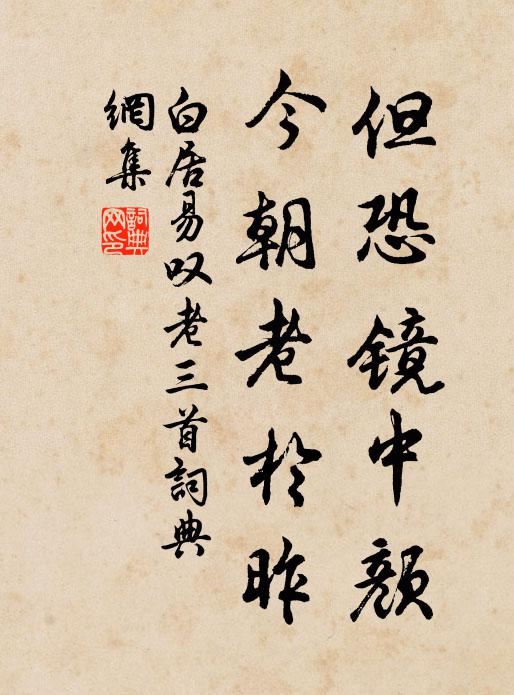 但恐镜中颜
今朝老於昨
白居易叹老三首詞典
網集
詞典
网印